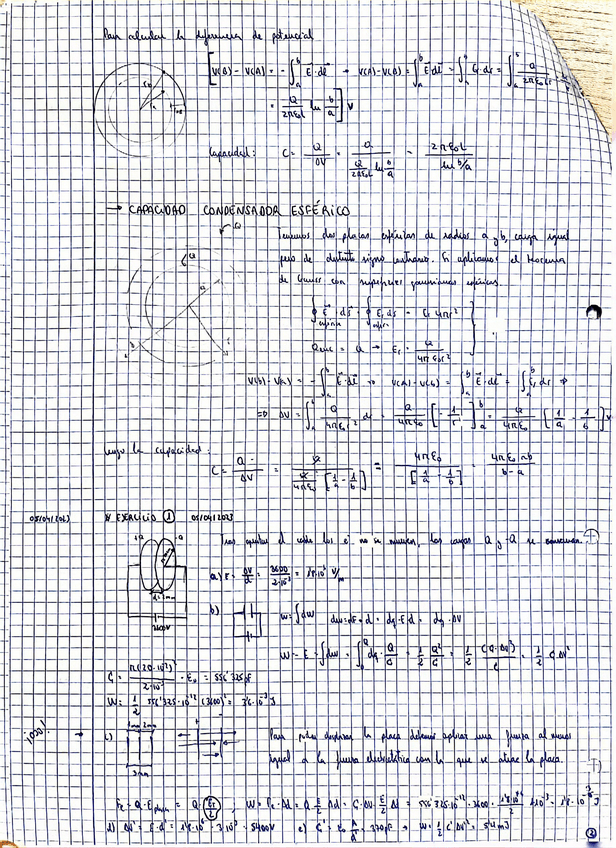 Para calcular la diferencia de potencial
[V(B) - V(A) = -∫ₐᵇ E⃗·dl⃗ → V(A) - V(B) = ∫ₐᵇ E⃗·dl⃗ = ∫ₐᵇ Eᵣ dr = ∫ₐᵇ Q/(2πε₀L r)
= Q/(2πε₀L) ln b/a] V
Capacidad: C = Q/ΔV = Q/(Q/(2πε₀L) ln b/a) = 2πε₀L/(ln b/a)
→ CAPACIDAD CONDENSADOR ESFÉRICO
Tenemos dos placas esféricas de radios a y b, carga igual
pero de distinto signo. Si aplicamos el teorema
de Gauss con superficies gaussianas esféricas.
∮ E⃗·ds⃗ = ∮ Eᵣ ds = Eᵣ 4πr²
Q = Q → Eᵣ = Q/(4πε₀r²)
V(b) - V(a) = -∫ₐᵇ E⃗·dl⃗ ⇒ V(A) - V(B) = ∫ₐᵇ E⃗·dl⃗ = ∫ₐᵇ Eᵣ dr ⇒
⇒ ΔV = ∫ₐᵇ Q/(4πε₀r²) dr = Q/(4πε₀) [-1/r]ₐᵇ = Q/(4πε₀) [1/a - 1/b] V
luego la capacidad:
C = Q/ΔV = Q/(Q/(4πε₀) [1/a - 1/b]) = 4πε₀/[1/a - 1/b] = 4πε₀ab/(b-a)
EJERCICIO ① 05/04/2023
Tras quitar el cable los e⁻ no se mueven, las cargas Q y -Q se conservan.
a) E = ΔV/d = 3600/(2·10⁻³) = 1'8·10⁶ V/m
d=2mm
3600V
b) W = ∫dW dW = dF·d = dq·E·d = dq·ΔV
W = E = ∫dW = ∫₀Q dq·Q/C = 1/2 Q²/C = 1/2 (C·ΔV)²/C = 1/2 C·ΔV²
C = π(20·10⁻²)²/(2·10⁻³) · ε₀ = 556'325pF
W = 1/2 556'325·10⁻¹² (3600)² = 3'6·10⁻³ J
¡OJO! → c)
1mm 2mm
3mm
Para poder desplazar la placa debemos aplicar una fuerza al menos
igual a la fuerza electrostática con la que se atrae la placa.
d) ΔV' = E·d' = 1'8·10⁶·3·10⁻³ = 5400V e) C' = ε₀ A/d' = 370pF → W = 1/2 C'ΔV'² = 5'4mJ
②